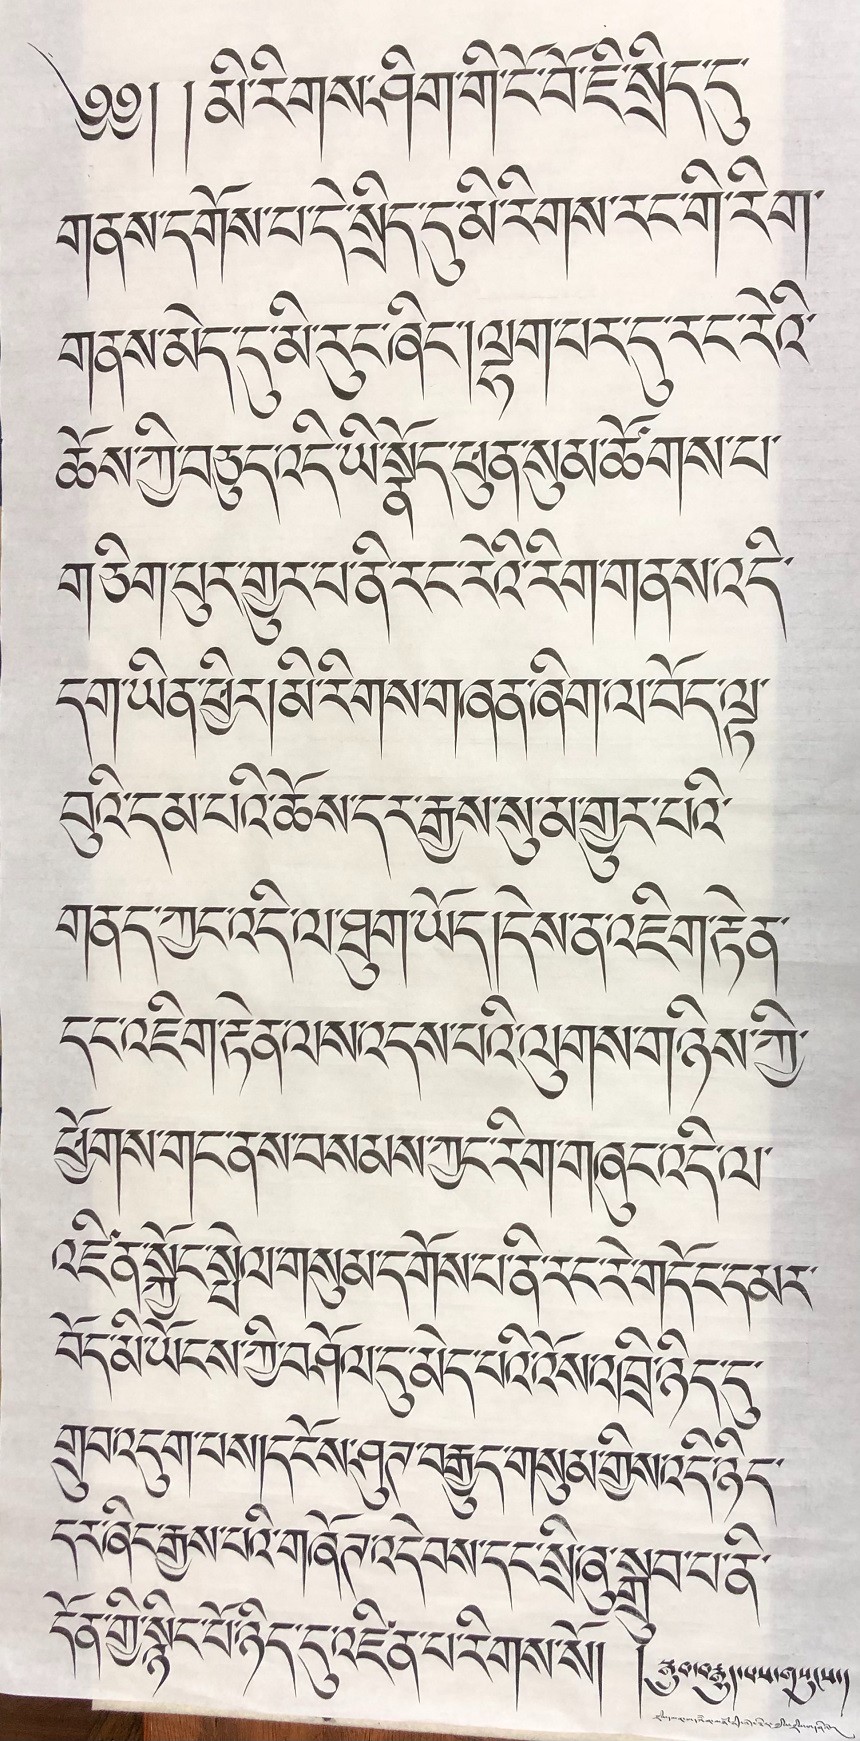 ༄༅། །མི་རིགས་ཤིག་གི་ངོ་བོ་ཇི་སྲིད་དུ་
གནས་དགོས་པ་དེ་སྲིད་དུ་མི་རིགས་རང་གི་རིག་
གནས་མེད་དུ་མི་རུང་ཞིང་།ལྷག་པར་དུ་རང་རེའི་
ཆོས་ཀྱི་བཅུད་འདི་ཡི་སྣོད་ཕུན་སུམ་ཚོགས་པ་
གཅིག་པུར་གྱུར་པ་ནི་རང་རེའི་རིག་གནས་འདི་
དག་ཡིན་ཕྱིར།མི་རིགས་གཞན་ཞིག་ལ་བོད་ལྟ་
བུའི་དམ་པའི་ཆོས་དར་རྒྱས་སུ་མ་གྱུར་པའི་
གནད་ཀྱང་འདི་ལ་ཐུག་ཡོད།དེས་ན་འཇིག་རྟེན་
དང་འཇིག་རྟེན་ལས་འདས་པའི་ལུགས་གཉིས་ཀྱི་
ཕྱོགས་གང་ནས་བསམས་ཀྱང་རིག་གཞུང་འདི་ལ་
འཛིན་སྐྱོང་སྤེལ་གསུམ་དགོས་པ་ནི་རང་རེ་གདོང་དམར་
བོད་མི་ཡོངས་ཀྱི་བཤོལ་དུ་མེད་པའི་འོས་འཁྲི་ཉིད་དུ་
གྲུབ་འདུག་པས།དངོས་ཤུན་བརྒྱུད་གསུམ་གྱིས་འདི་ཉིད་
དར་ཞིང་རྒྱས་པའི་གཞོན་འདེབས་དང་སྲི་ཞུ་སྒྲུབ་པ་ནི་
དོན་གྱི་སྙིང་པོ་ཉིད་དུ་འཛིན་པ་རིགས་སོ། །